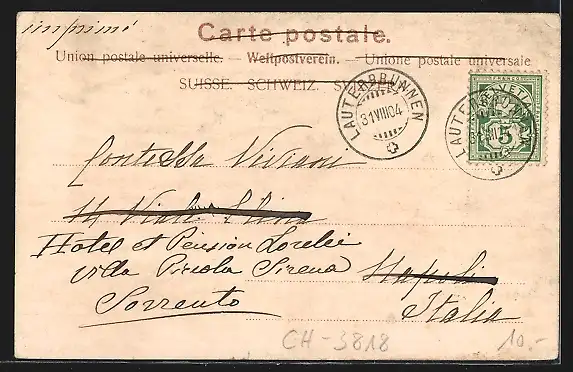 imprimé
Carte postale.
Union postale universelle. — Weltpostverein. — Unione postale universale
SUISSE. SCHWEIZ. SVIZZERA.
LAUTERBRUNNEN
31.VIII.04
HELVETIA
5
Contessa Viviani
14 Viale Elina
Hotel et Pension Lorelei
Villa Piccola Sirena
Napoli
Sorrento
Italia
CH-3818
10.-